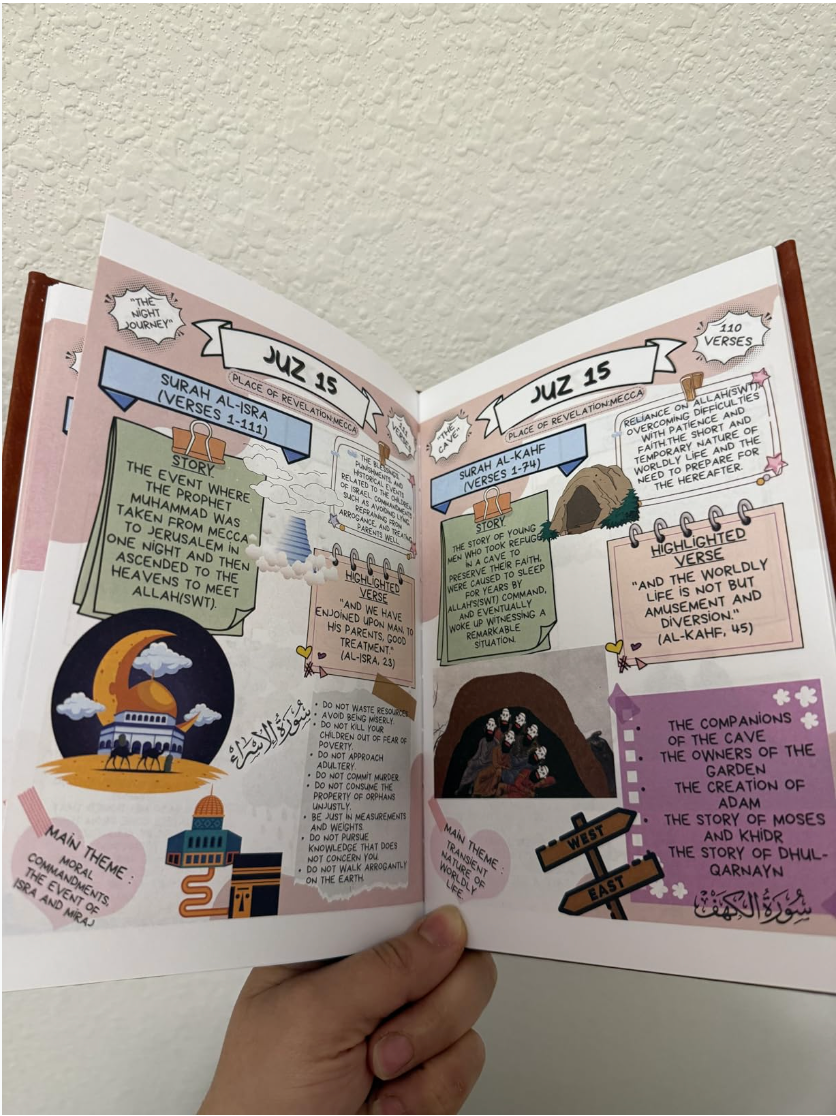 "THE
NIGHT
JOURNEY"
JUZ 15
PLACE OF REVELATION:MECCA
SURAH AL-ISRA
(VERSES 1-111)
VERSES
STORY
THE EVENT WHERE
THE PROPHET
MUHAMMAD WAS
TAKEN FROM MECCA
TO JERUSALEM IN
ONE NIGHT AND THEN
ASCENDED TO THE
HEAVENS TO MEET
ALLAH(SWT).
THE BLESSINGS,
PUNISHMENTS, AND
HISTORICAL EVENTS
RELATED TO THE CHILDREN
OF ISRAEL COMMANDMENTS
SUCH AS AVOIDING LYING,
REFRAINING FROM
ARROGANCE, AND TREATING
PARENTS WELL.
HIGHLIGHTED
VERSE
"AND WE HAVE
ENJOINED UPON MAN, TO
HIS PARENTS, GOOD
TREATMENT."
(AL-ISRA, 23)
سُورَةُ الإِسْرَاءِ
• DO NOT WASTE RESOURCES
• AVOID BEING MISERLY.
• DO NOT KILL YOUR
CHILDREN OUT OF FEAR OF
POVERTY.
• DO NOT APPROACH
ADULTERY.
• DO NOT COMMIT MURDER.
• DO NOT CONSUME THE
PROPERTY OF ORPHANS
UNJUSTLY.
• BE JUST IN MEASUREMENTS
AND WEIGHTS.
• DO NOT PURSUE
KNOWLEDGE THAT DOES
NOT CONCERN YOU.
• DO NOT WALK ARROGANTLY
ON THE EARTH.
MAIN THEME :
MORAL
COMMANDMENTS,
THE EVENT OF
ISRA AND MIRAJ
"THE
CAVE
JUZ 15
PLACE OF REVELATION:MECCA
110
VERSES
SURAH AL-KAHF
(VERSES 1-74)
RELIANCE ON ALLAH(SWT)
OVERCOMING DIFFICULTIES
WITH PATIENCE AND
FAITH.THE SHORT AND
TEMPORARY NATURE OF
WORLDLY LIFE AND THE
NEED TO PREPARE FOR
THE HEREAFTER.
STORY
THE STORY OF YOUNG
MEN WHO TOOK REFUGE
IN A CAVE TO
PRESERVE THEIR FAITH,
WERE CAUSED TO SLEEP
FOR YEARS BY
ALLAH'S(SWT) COMMAND,
AND EVENTUALLY
WOKE UP WITNESSING A
REMARKABLE
SITUATION.
HIGHLIGHTED
VERSE
"AND THE WORLDLY
LIFE IS NOT BUT
AMUSEMENT AND
DIVERSION."
(AL-KAHF, 45)
• THE COMPANIONS
OF THE CAVE
• THE OWNERS OF THE
GARDEN
• THE CREATION OF
ADAM
• THE STORY OF MOSES
AND KHIDR
• THE STORY OF DHUL-
QARNAYN
سُورَةُ الكَهْفِ
MAIN THEME :
TRANSIENT
NATURE OF
WORLDLY
LIFE.
WEST
EAST